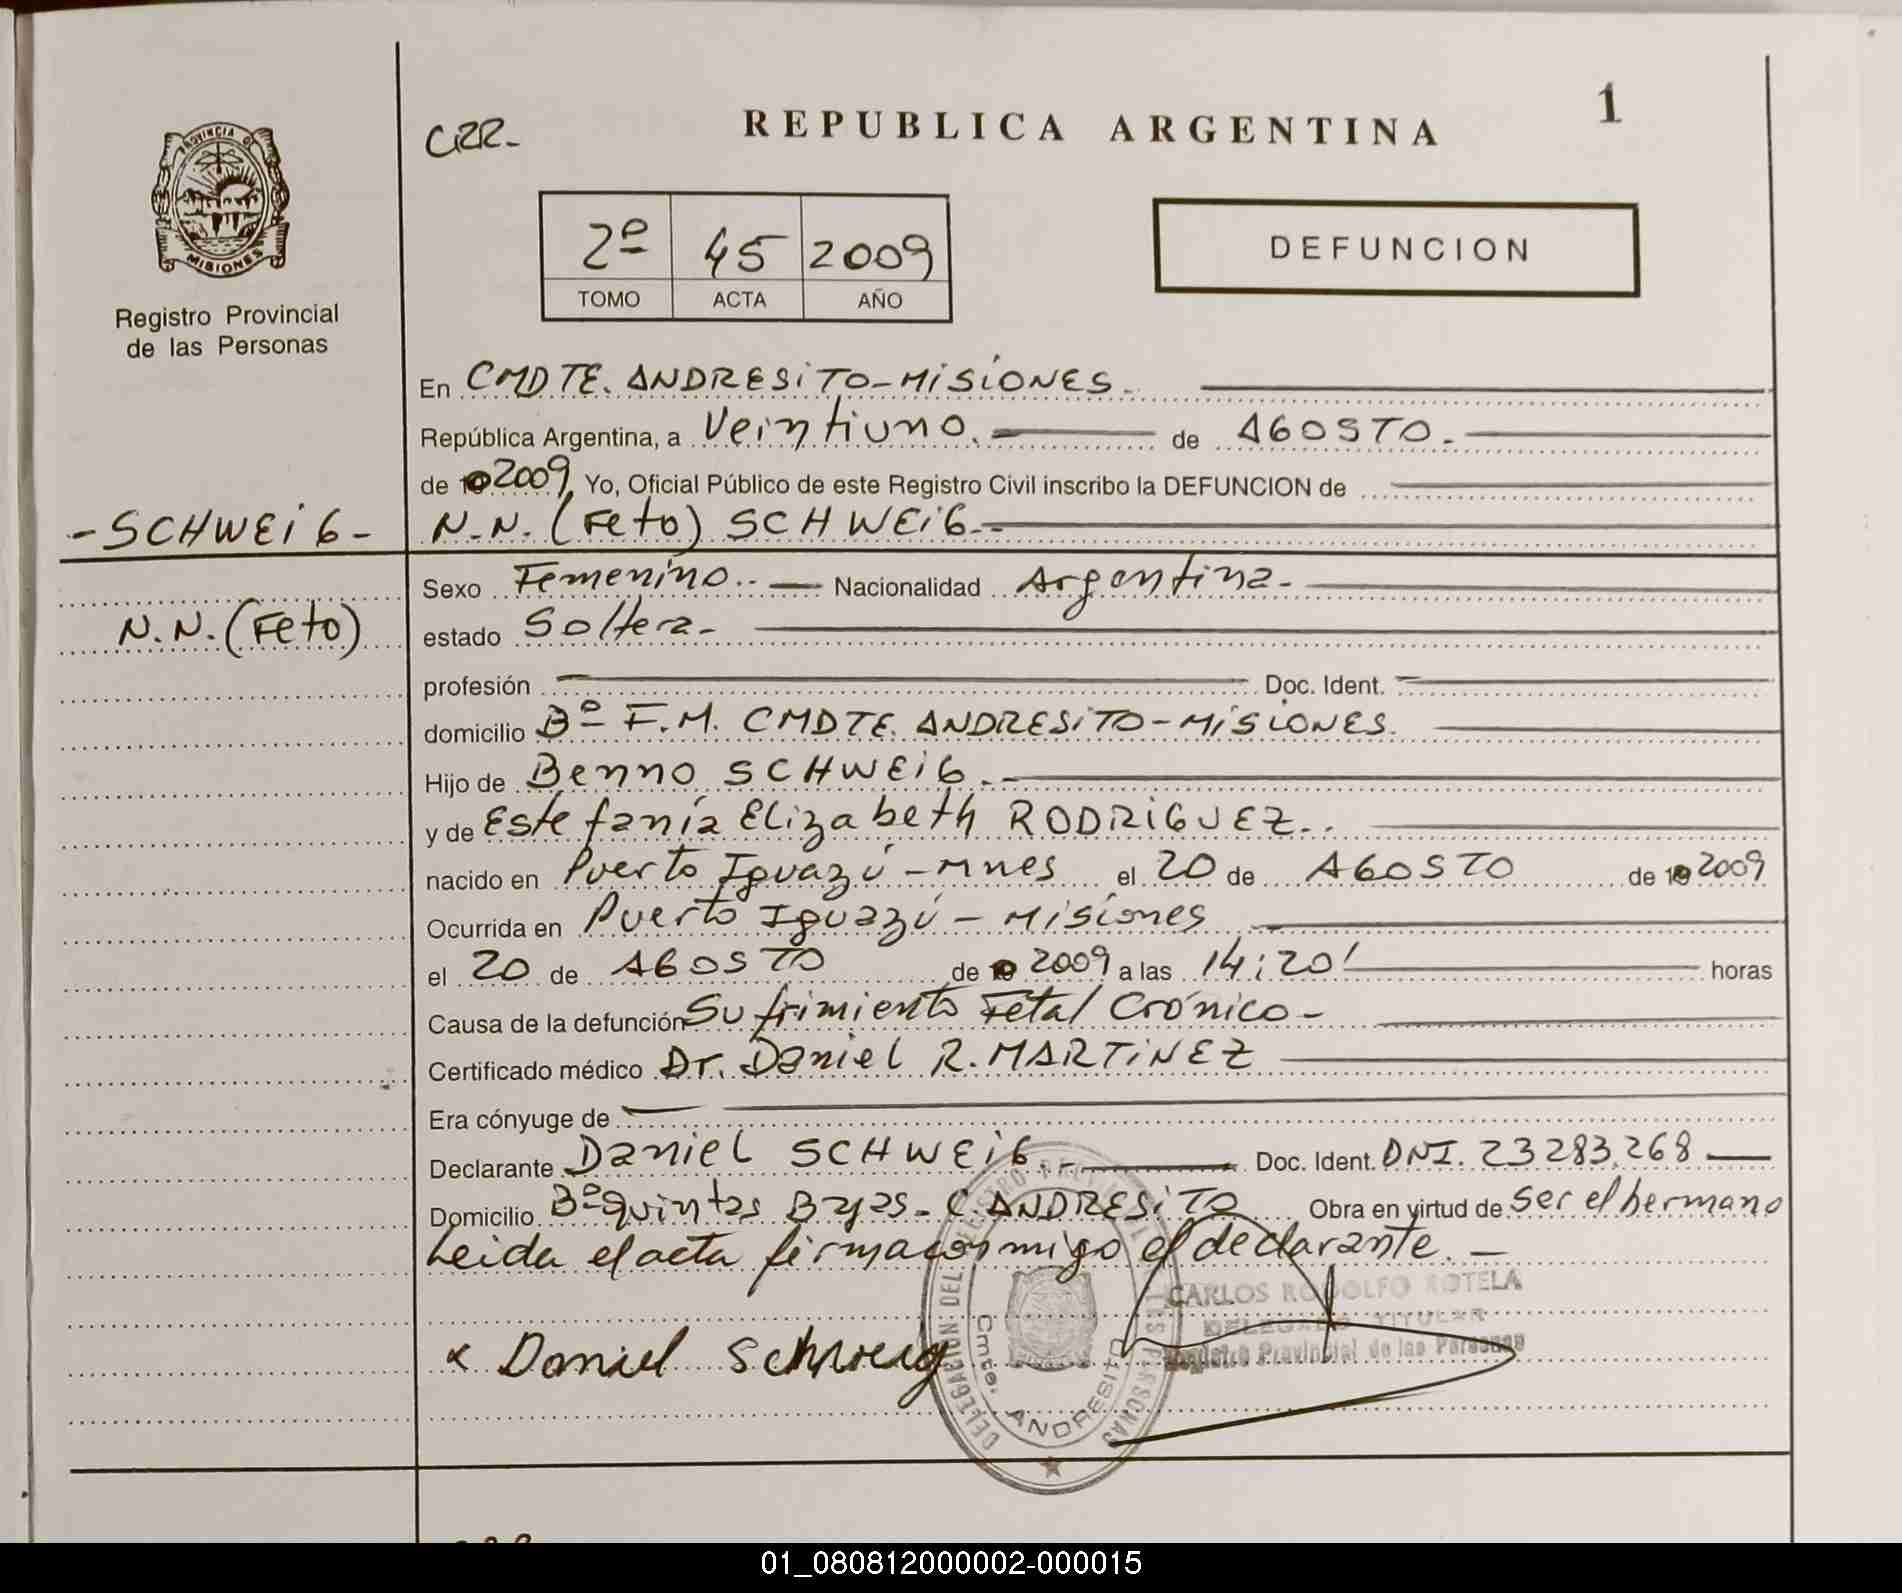 REPUBLICA ARGENTINA
1
CRR-
PROVINCIA DE
MISIONES
Registro Provincial
de las Personas
2º 45 2009
TOMO ACTA AÑO
DEFUNCION
En CMDTE. ANDRESITO-MISIONES.
República Argentina, a Veintiuno. de AGOSTO.
de 2009, Yo, Oficial Público de este Registro Civil inscribo la DEFUNCION de
-SCHWEIG-
N.N. (Feto) SCHWEIG.-
N.N. (Feto)
Sexo Femenino.. Nacionalidad Argentina.
estado Soltera-
profesión Doc. Ident.
domicilio Bº F.M. CMDTE. ANDRESITO-MISIONES.
Hijo de Benno SCHWEIG.
y de Estefanía Elizabeth RODRIGUEZ..
nacido en Puerto Iguazú-Mnes el 20 de AGOSTO de 2009
Ocurrida en Puerto Iguazú - Misiones
el 20 de AGOSTO de 2009 a las 14:20' horas
Causa de la defunción Sufrimiento Fetal Crónico-
Certificado médico Dr. Daniel R. MARTINEZ
Era cónyuge de
Declarante Daniel SCHWEIG.- Doc. Ident. DNI. 23283.268
Domicilio Bº quintas Bajas - C. ANDRESITO Obra en virtud de ser el hermano
Leida el acta firma conmigo el declarante.-
CARLOS RODOLFO ROTELA
DELEGADO TITULAR
Registro Provincial de las Personas
x Daniel Schweig
DELEGACION DEL REGISTRO PROVINCIAL DE LAS PERSONAS
Cmte. ANDRESITO
01_080812000002-000015